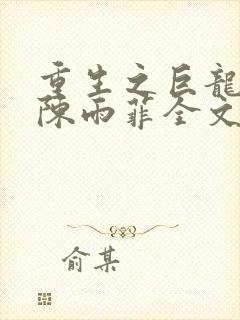 重生之巨龍
陳雨菲全文
俞某